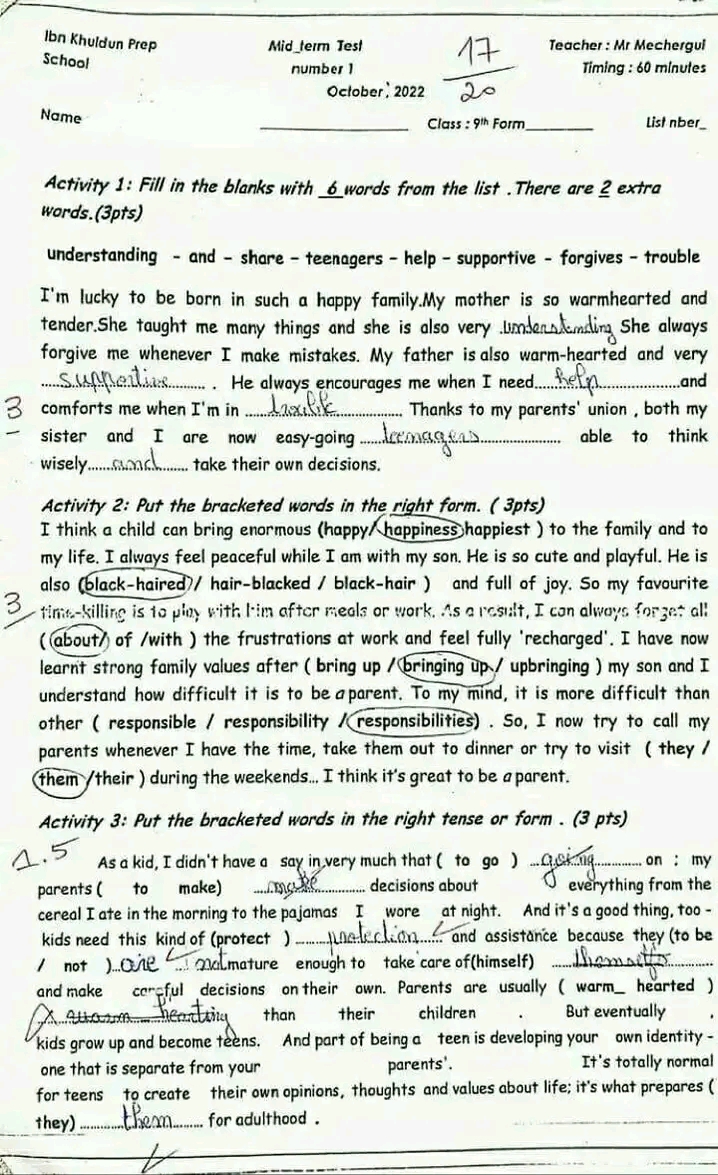 Ibn Khuldun Prep
School
Mid_term Test
number 1
October, 2022
17
20
Teacher : Mr Mechergui
Timing : 60 minutes
Name
Class : 9th Form
List nber_
Activity 1: Fill in the blanks with 6 words from the list . There are 2 extra
words.(3pts)
understanding - and - share - teenagers - help - supportive - forgives - trouble
I'm lucky to be born in such a happy family.My mother is so warmhearted and
tender.She taught me many things and she is also very .understanding She always
forgive me whenever I make mistakes. My father is also warm-hearted and very
....supportive........ . He always encourages me when I need....help...............and
3 comforts me when I'm in .....trouble............ Thanks to my parents' union , both my
sister and I are now easy-going ....teenagers................ able to think
wisely.....and....... take their own decisions.
Activity 2: Put the bracketed words in the right form. ( 3pts)
I think a child can bring enormous (happy/ happiness/happiest ) to the family and to
my life. I always feel peaceful while I am with my son. He is so cute and playful. He is
also ( black-haired / hair-blacked / black-hair ) and full of joy. So my favourite
3 time-killing is to play with him after meals or work. As a result, I can always forget all
( about/ of /with ) the frustrations at work and feel fully 'recharged'. I have now
learnt strong family values after ( bring up / bringing up / upbringing ) my son and I
understand how difficult it is to be a parent. To my mind, it is more difficult than
other ( responsible / responsibility / responsibilities) . So, I now try to call my
parents whenever I have the time, take them out to dinner or try to visit ( they /
them /their ) during the weekends... I think it's great to be a parent.
Activity 3: Put the bracketed words in the right tense or form . (3 pts)
1.5
As a kid, I didn't have a say in very much that ( to go ) ...going.......... on : my
parents ( to make) ....make.......... decisions about everything from the
cereal I ate in the morning to the pajamas I wore at night. And it's a good thing, too -
kids need this kind of (protect ) ........protection...... and assistance because they (to be
/ not )..are ..not mature enough to take care of(himself) .....themselfs........
and make careful decisions on their own. Parents are usually ( warm_ hearted )
warm hearting than their children . But eventually ,
kids grow up and become teens. And part of being a teen is developing your own identity -
one that is separate from your parents'. It's totally normal
for teens to create their own opinions, thoughts and values about life; it's what prepares (
they) ..........them........ for adulthood .